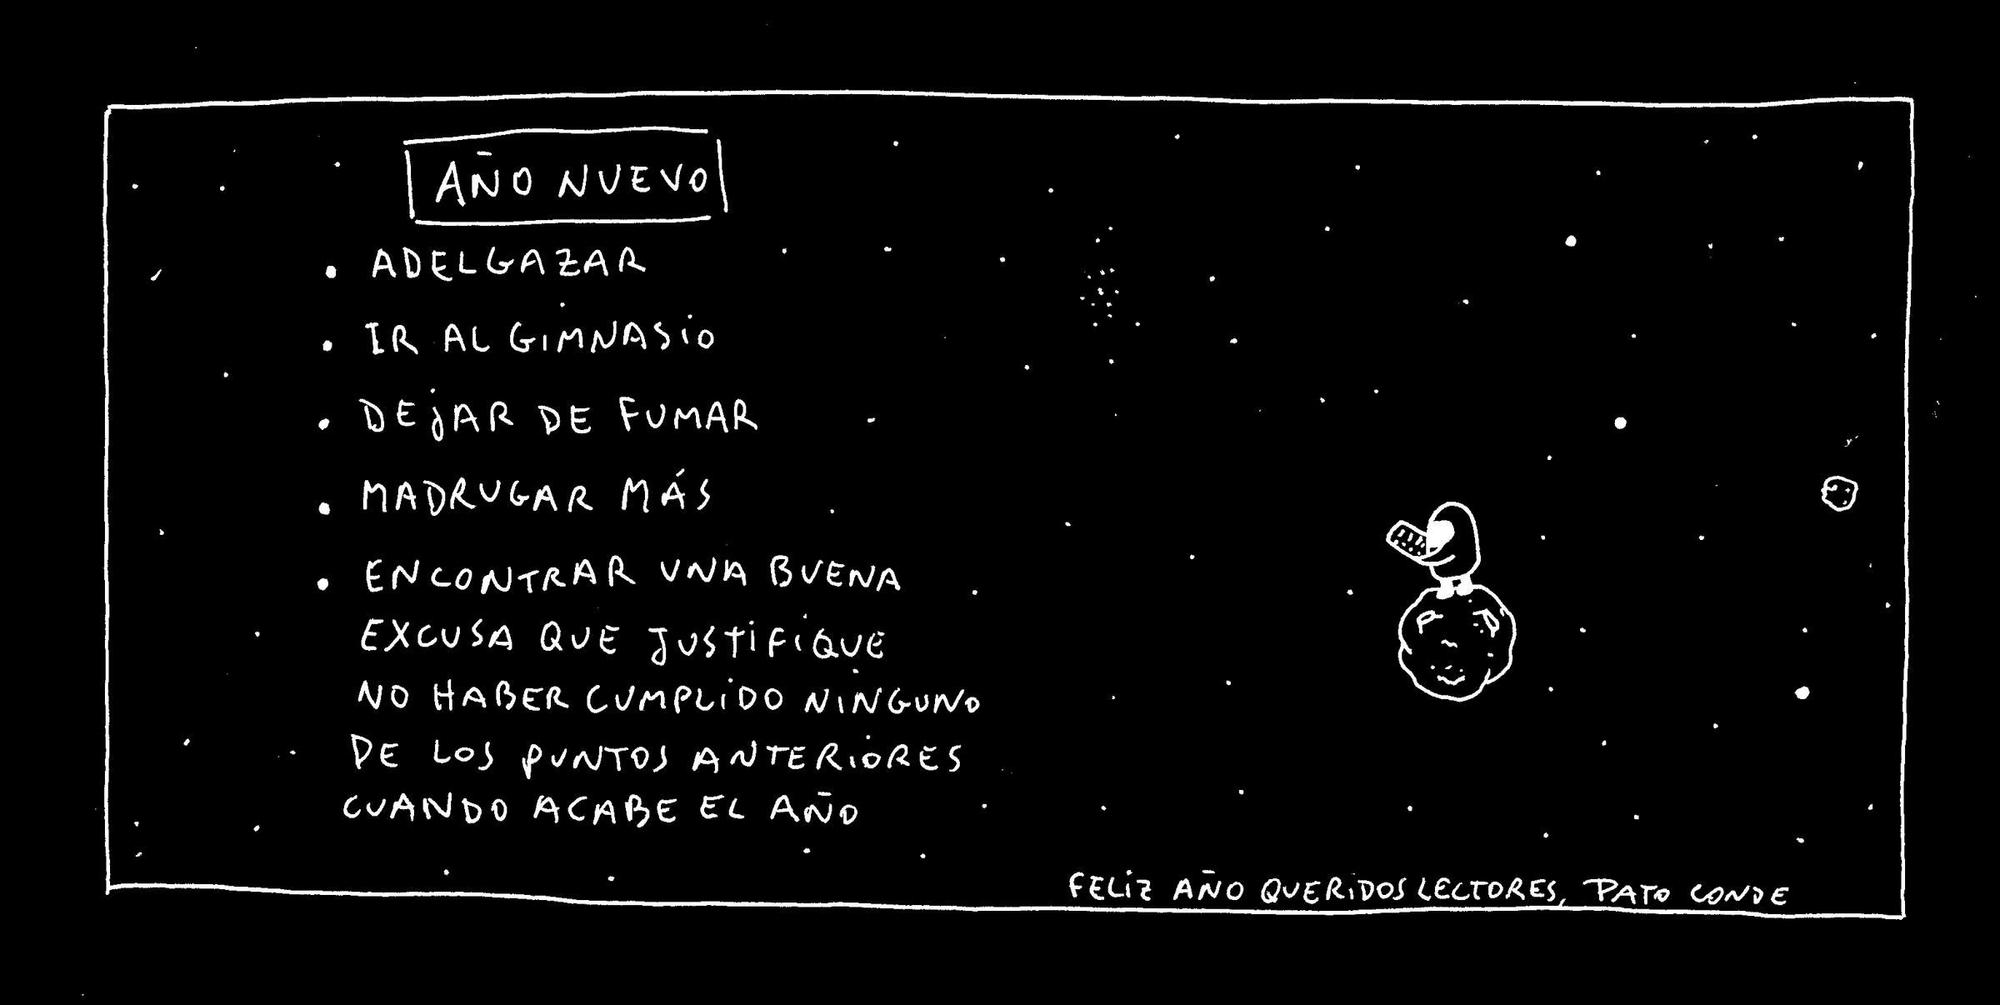 AÑO NUEVO
• ADELGAZAR
• IR AL GIMNASIO
• DEJAR DE FUMAR
• MADRUGAR MÁS
• ENCONTRAR UNA BUENA
EXCUSA QUE JUSTIFIQUE
NO HABER CUMPLIDO NINGUNO
DE LOS PUNTOS ANTERIORES
CUANDO ACABE EL AÑO
FELIZ AÑO QUERIDOS LECTORES, PATO CONDE